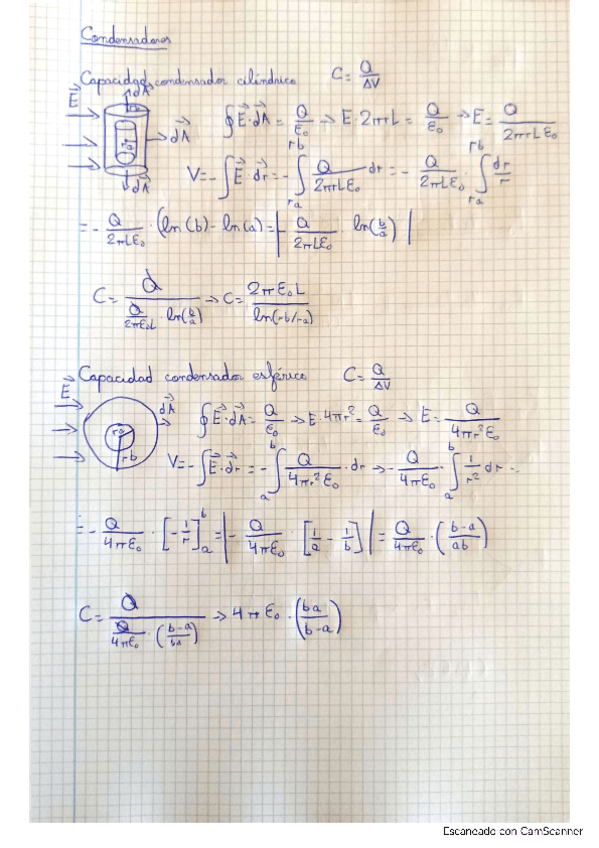 Condensadores
Capacidad condensador cilíndrico C = Q/ΔV
E⃗ dA⃗ ra dA⃗ dA⃗
∮E⃗·dA⃗ = Q/ε₀ → E·2πrL = Q/ε₀ → E = Q/2πrLε₀
V = -∫E⃗·dr⃗ = -∫_ra^rb Q/2πrLε₀ dr = - Q/2πLε₀ · ∫_ra^rb dr/r
= - Q/2πLε₀ · (ln(b) - ln(a) = |- Q/2πLε₀ · ln(b/a)|
C = Q/(Q/2πε₀L · ln(b/a)) → C = 2πε₀L/ln(rb/ra)
Capacidad condensador esférico C = Q/ΔV
E⃗ dA⃗ ra rb
∮E⃗·dA⃗ = Q/ε₀ → E·4πr² = Q/ε₀ → E = Q/4πr²ε₀
V = -∫E⃗·dr⃗ = -∫_a^b Q/4πr²ε₀ · dr → - Q/4πε₀ · ∫_a^b 1/r² dr =
= - Q/4πε₀ · [-1/r]_a^b = |- Q/4πε₀ · [1/a - 1/b]| = Q/4πε₀ · (b-a/ab)
C = Q/(Q/4πε₀ · (b-a/ba)) → 4πε₀ · (ba/b-a)
Escaneado con CamScanner